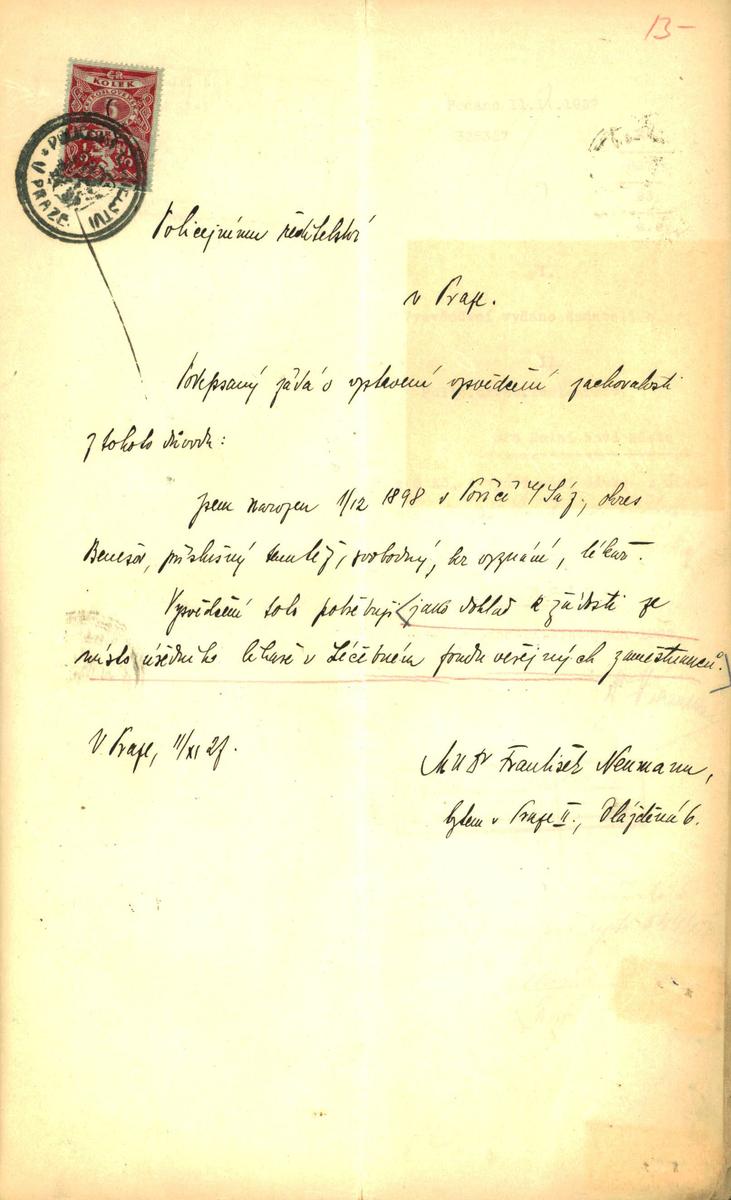 13-
KOLEK
6
V PRAZE.
Podáno 11.11.1927
Policejnímu ředitelství
v Praze.
Podepsaný žádá o vystavení vysvědčení zachovalosti
z tohoto důvodu:
Jsem narozen 1/12 1898 v Poříčí n/Sáz., okres
Benešov, příslušný tamtéž, svobodný, bez vyznání, lékař.
Vysvědčení toto potřebuji jako doklad k žádosti ze
místo úředního lékaře v Léčebném fondu veřejných zaměstnanců.
V Praze, 11/XI 27.
MUDr František Neumann,
bytem v Praze II., Dlážděná 6.